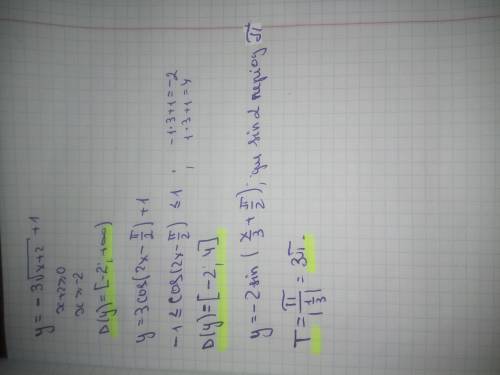 y = -3√x+2 + 1
x+2≥0
x ≥ -2
D(y) = [-2; +∞)
y = 3cos(2x - π/2) + 1
-1 ≤ cos(2x - π/2) ≤ 1 ; -1·3+1 = -2
; 1·3+1 = 4
D(y) = [-2; 4]
y = -2 sin (x/3 + π/2); для sin α період π
T = π/|1/3| = 3π.